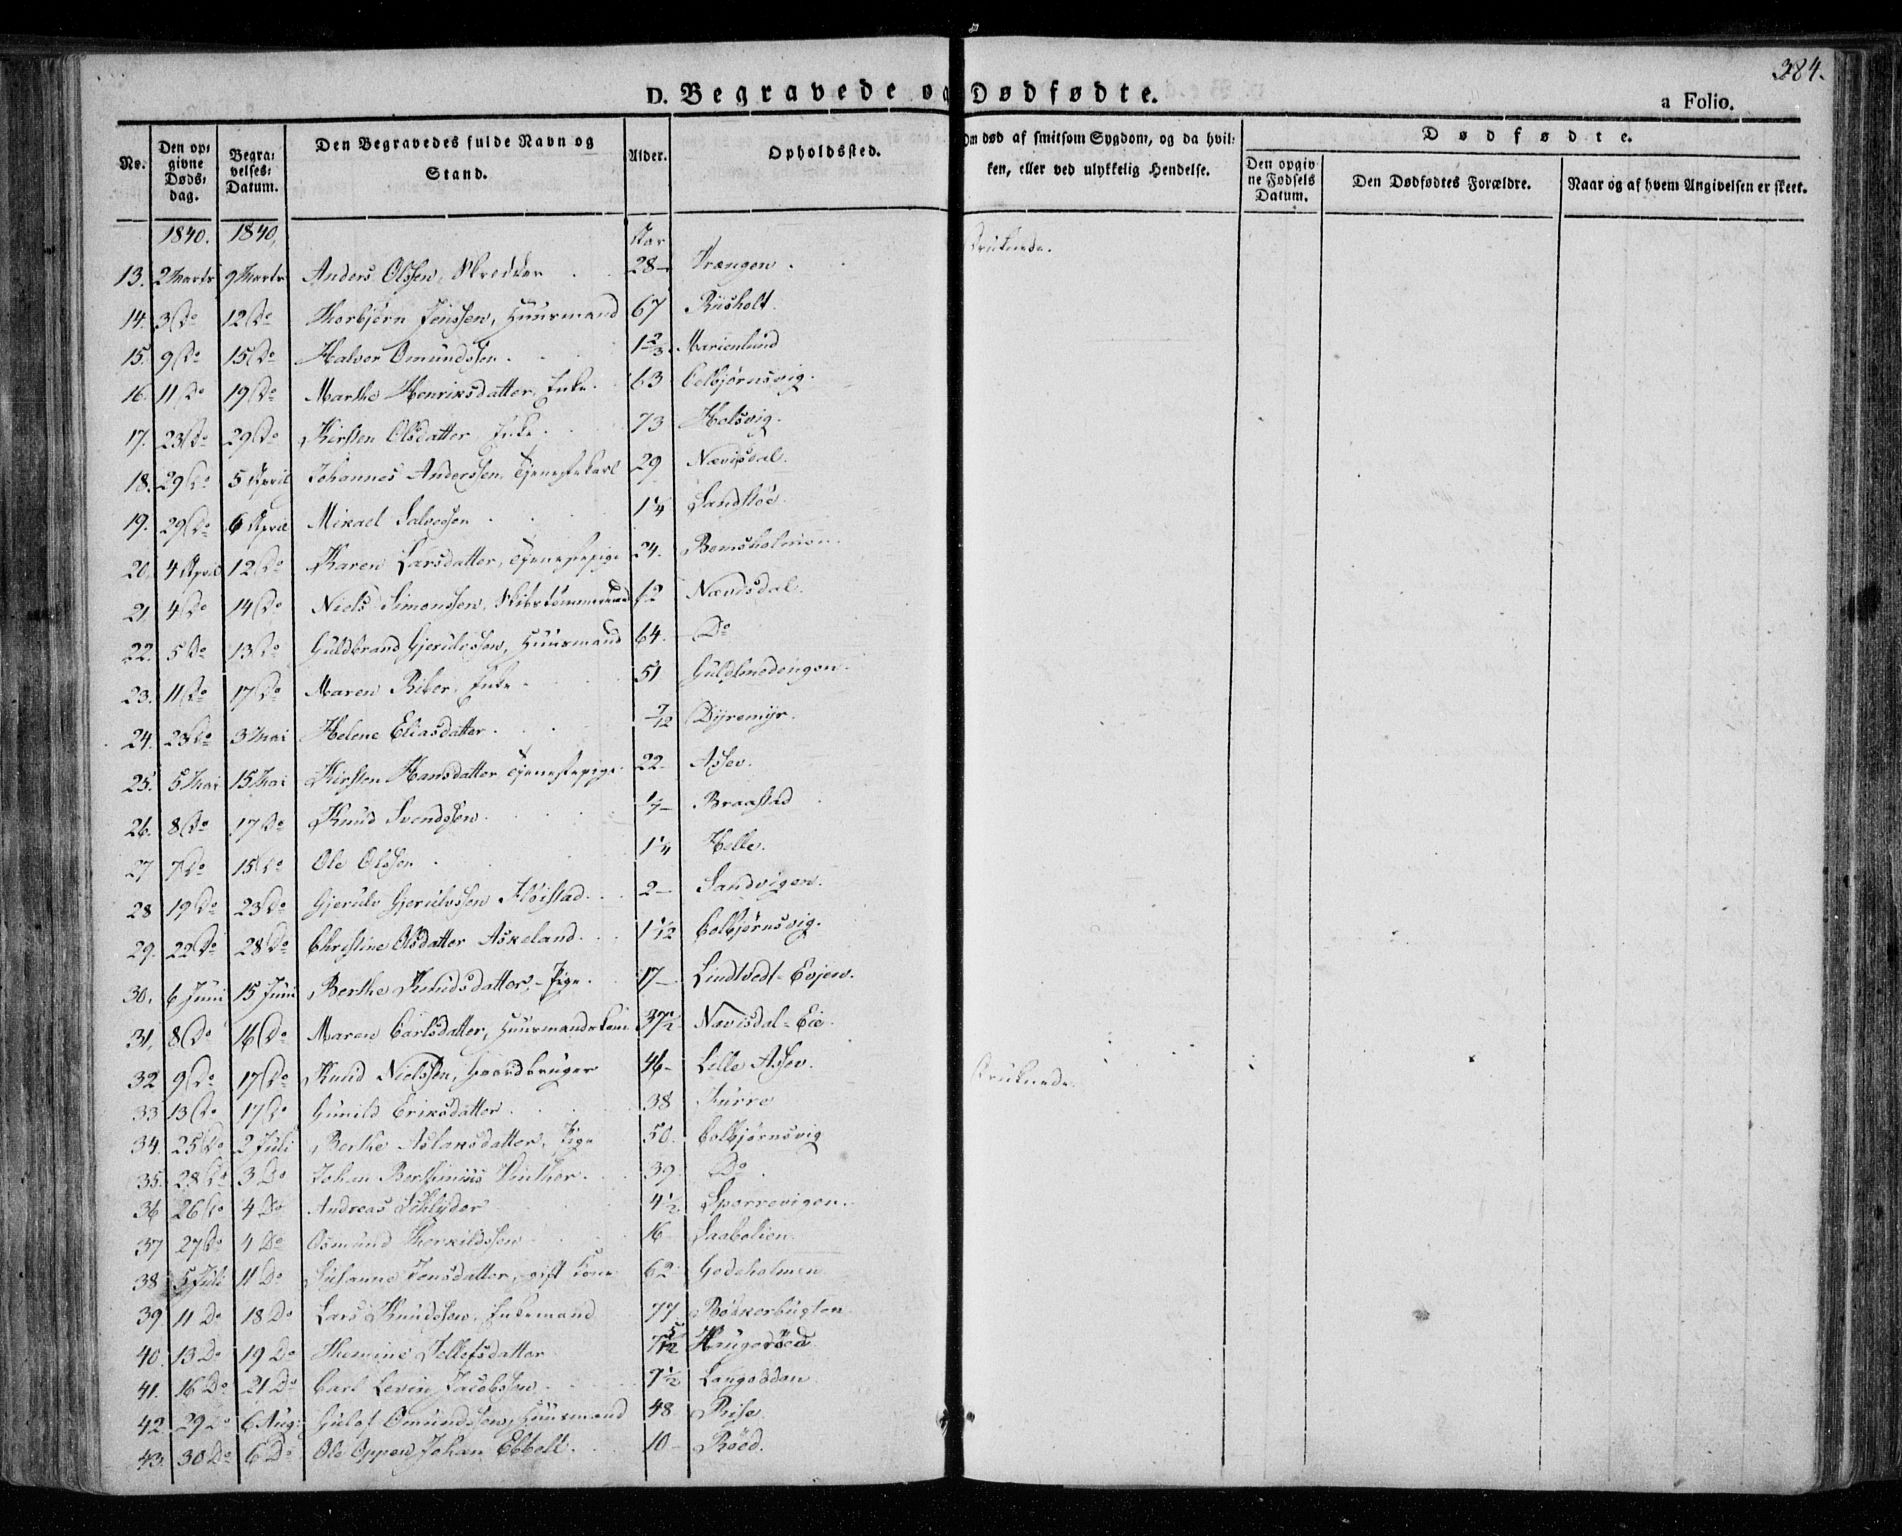 384.
D. Begravede og Dødfødte.
a Folio.
No. | Den opgivne Døds-dag. | Begravelses-Datum. | Den Begravedes fulde Navn og Stand. | Alder. | Opholdssted. | Om død af smitsom Sygdom, og da hvilken, eller ved ulykkelig Hendelse. | Dødfødte. | Den opgivne Fødsels Datum. | Den Dødfødtes Forældre. | Naar og af hvem Angivelsen er skeet.
1840. 1840. Aar
13. 2 Marts 9 Marts Anders Olssen, Skrædder 28 Trængen. Druknede.
14. 3 Do 12 Do Thorbjørn Jenssen, Huusmand 67 Riisholt.
15. 9 Do 15 Do Halvor Omundssen. 1 2/3 Marienlund
16. 11 Do 19 Do Marthe Henriksdatter, Enke. 63 Colbjørnsvig.
17. 23 Do 29 Do Kirsten Olsdatter, Enke. 73 Holsvig.
18. 29 Do 5 April Johannes Anderssen, Tjenestekarl 29 Nævisdal.
19. 29 Do 6 April Mikael Salvessen 1 1/4 Sandstøe.
20. 4 April 12 Do Karen Larsdatter, Tjenestepige 24. Bomsholmen.
21. 4 Do 14 Do Niels Simonssen, Skibstømmermand Nævisdal.
22. 5 Do 13 Do Guldbrand Gjerulvssen, Huusmand 64. Do
23. 11 Do 17 Do Maren Riber, Enke. 51 Guldsmedengen.
24. 23 Do 3 Mai Helene Eliasdatter. 7/12 Dyremyr.
25. 5 Mai 15 Mai Kirsten Hansdatter Tjenestepige. 22 Assev.
26. 8 Do 17 Do Knud Svendssen. Braastad
27 7 Do 15 Do Ole Olssen. 1 1/4 Helle.
28 19 Do 23 Do Gjerulv Gjerulvssen Fløistad. 2 Sandvigen.
29. 22 Do 28 Do Christine Olsdatter Askeland. 1 1/12 Colbjørnsvig.
30. 6 Juni 15 Juni Berthe Knudsdatter, Pige. 17 Lindtvedt-Evjen.
31. 8 Do 16 Do Maren Carlsdatter, Huusmandskone 37 1/2 Nævisdal-Eie.
32 9 Do 17 Do Knud Nielssen, Gaardbruger 46 Lille Assev. Druknede.
33 13 Do 17 Do Gunild Eriksdatter. 38 Kurre
34. 25 Do 2 Juli Berthe Aslaksdatter, Pige 50. Colbjørnsvig
35. 28 Do 3 Do Johan Berthinius Winther. 39 Do
36 26 Do 4 Do Andreas Schlyder 4 1/2 Sperrevigen.
37 27 Do 4 Do Osmund Therkildssen 16 Saabelien.
38 5 Juli 11 Do Susanne Jensdatter, gift Kone 62 Godeholmen.
39 11 Do 18 Do Lars Knudssen, Enkemand 77 Bødkerbugten.
40. 13 Do 19 Do Themine Tellefsdatter 7 5/12 Haugerøed
41. 16 Do 21 Do Carl Levin Jacobssen 9 1/2 Langodden
42. 29 Do 6 Aug: Omundssen, Huusmand 48. Rise
43. 30 Do 6 Do Ole Oppen Johan Ebbell. 10 Røed.